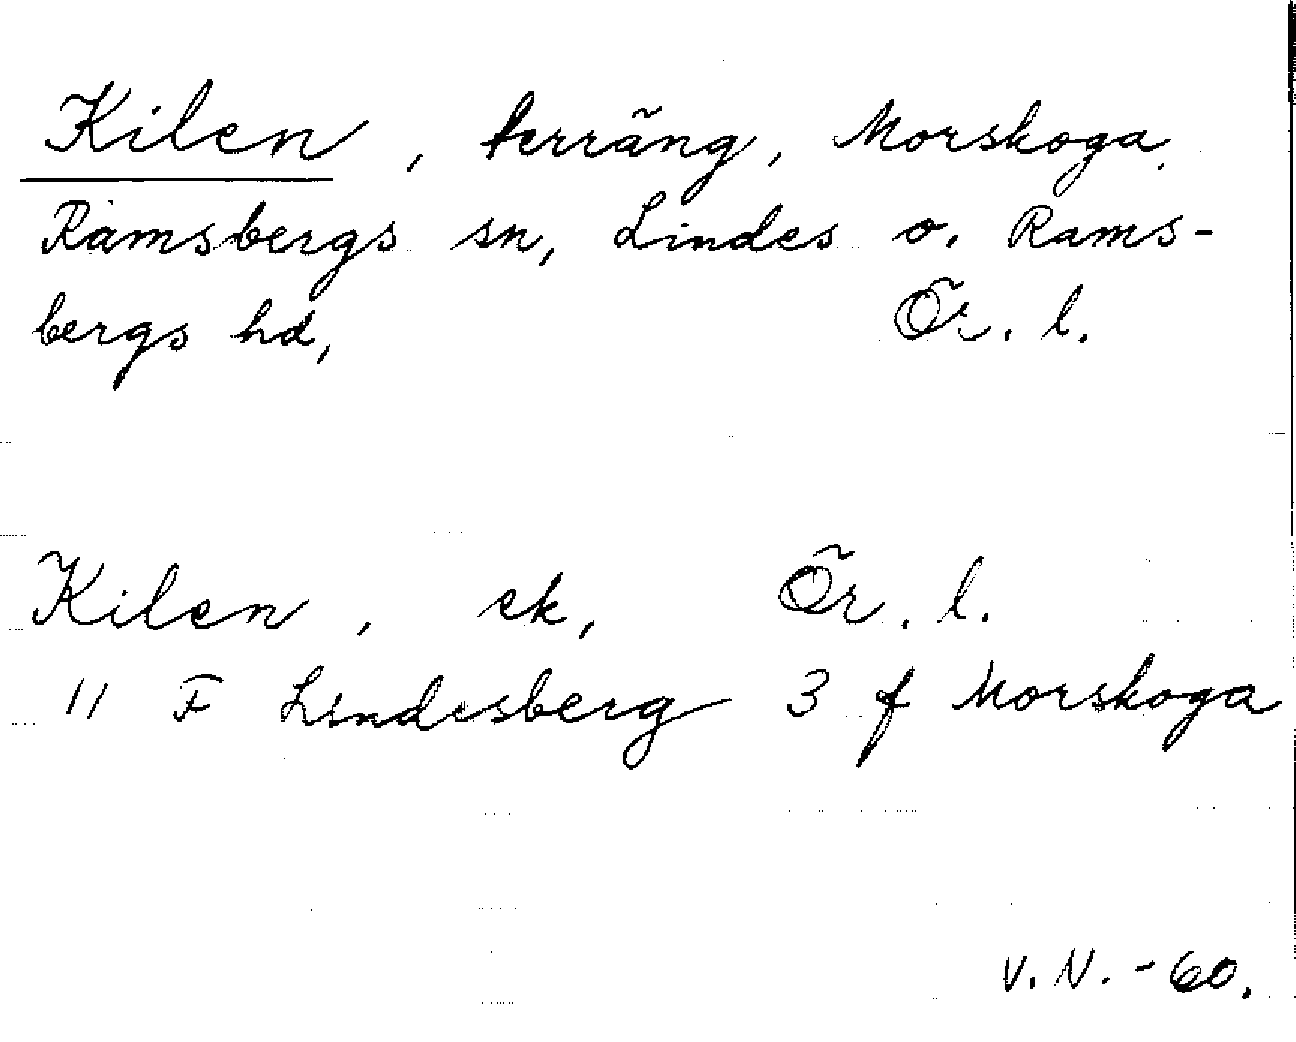 Kilen, terräng, Morskoga,
Ramsbergs sn, Lindes o. Rams-
bergs hd, Ör. l.
Kilen, ek, Ör. l.
11 F Lindesberg 3 f Morskoga
V. N. - 60.